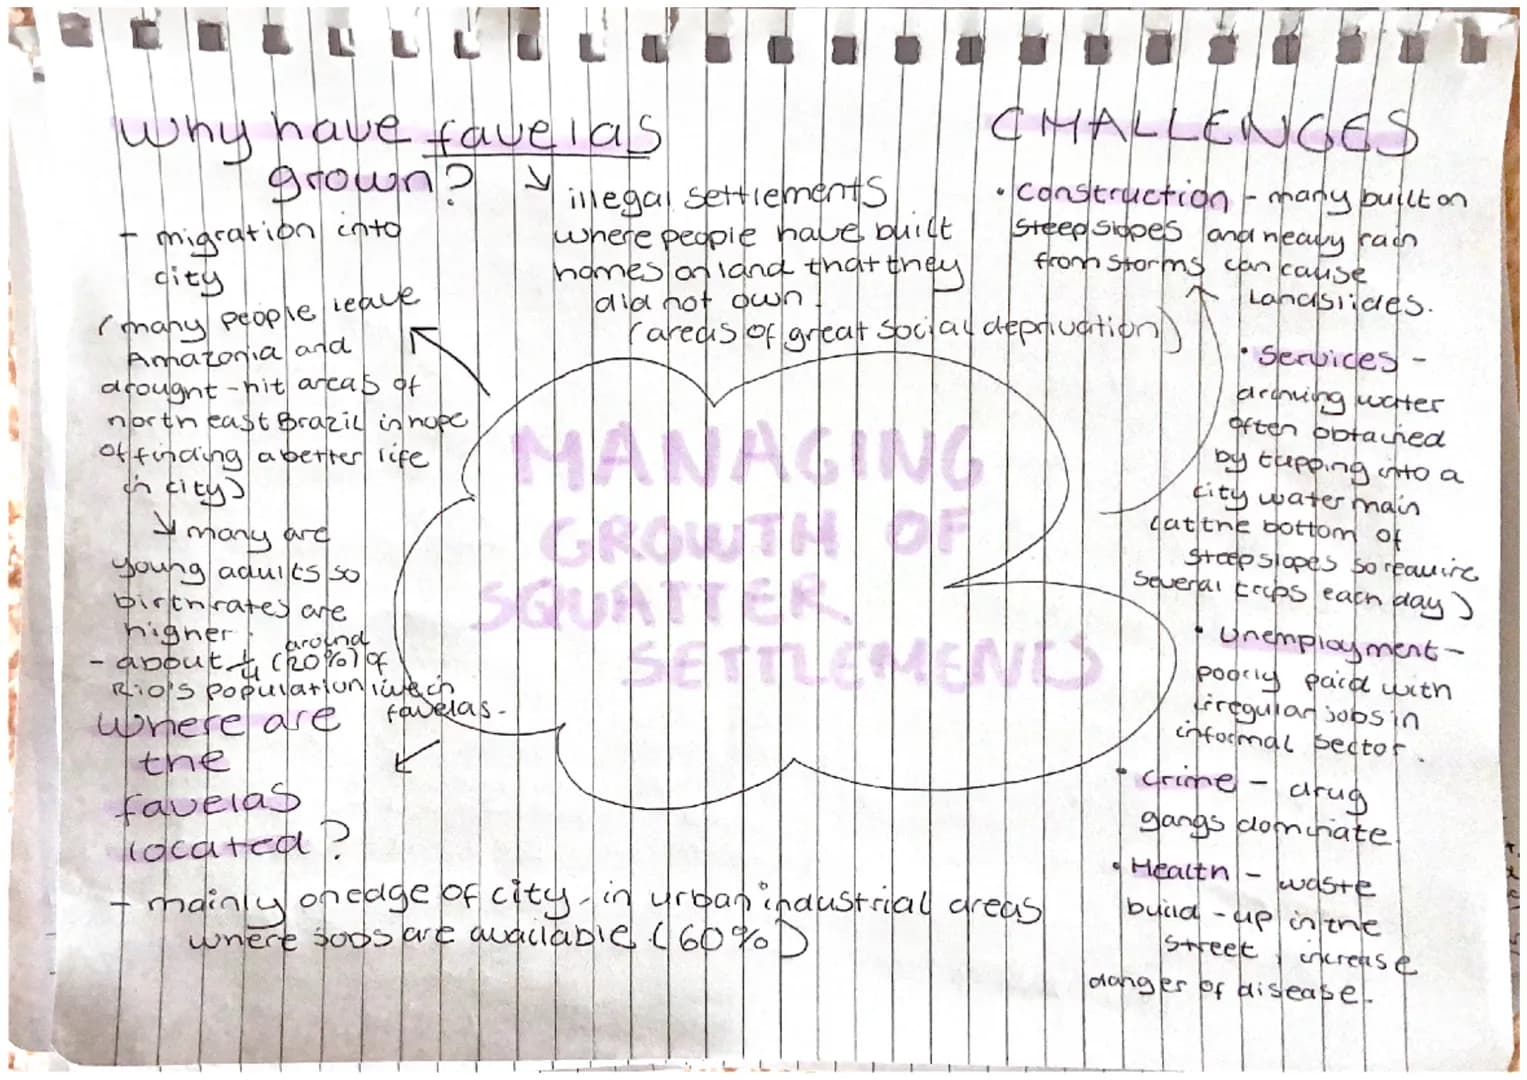 Why have favelas
grown?
- migration into
city
(many people leave
Amazonia and
drought-hit areas of
north east Brazil in hope
of finding a better life
in city)
↘ many are
young adults so
birthrates are
higher.
- about 1/4 (around 20%) of
Rio's population live in
favelas.
↘ illegal settlements
where people have built
homes on land that they
did not own.
(areas of great social deprivation)
MANAGING
GROWTH OF
SQUATTER
SETTLEMENTS
where are
the
favelas
located?
- mainly on edge of city, in urban industrial areas
where jobs are available. (60%)
CHALLENGES
• construction - many built on
steep slopes and heavy rain
from storms can cause
landslides.
• Services -
drinking water
often obtained
by tapping into a
city water main
(at the bottom of
steep slopes so require
several trips each day)
• Unemployment -
poorly paid with
irregular jobs in
informal sector.
• crime - drug
gangs dominate.
• Health - waste
build-up in the
street, increase
danger of disease.